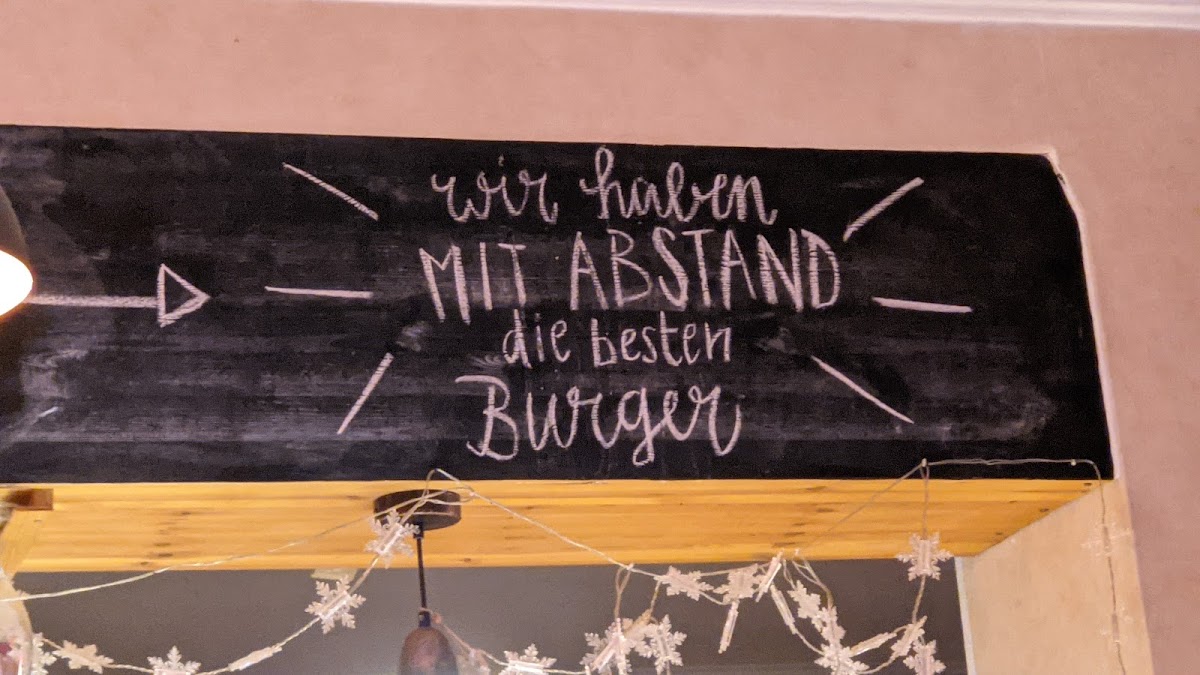 wir haben
MIT ABSTAND
die besten
Burger